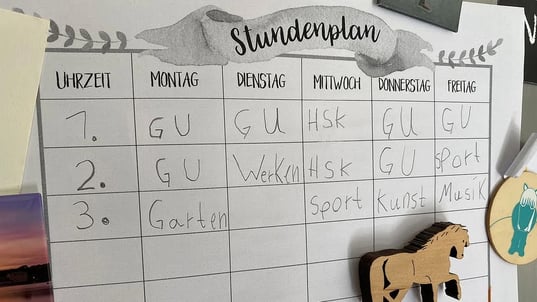 Stundenplan
UHRZEIT MONTAG DIENSTAG MITTWOCH DONNERSTAG FREITAG
1. GU GU HSK GU GU
2. GU Werken HSK GU Sport
3. Garten Sport Kunst Musik